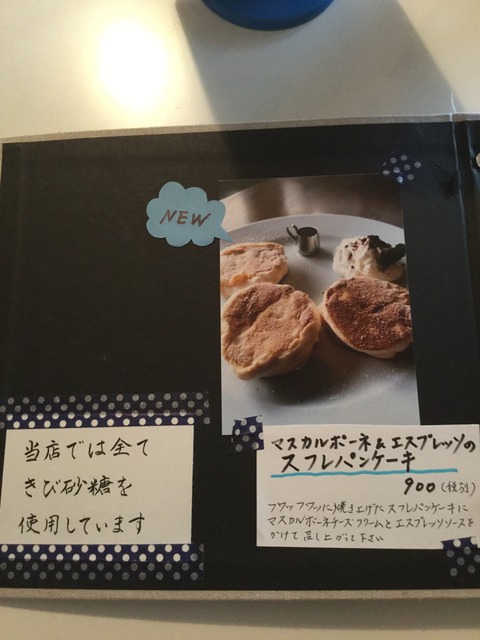 NEW
マスカルポーネ&エスプレッソの
スフレパンケーキ
900(税別)
フワッフワッに焼き上げたスフレパンケーキに
マスカルポーネチーズクリームとエスプレッソソースを
かけて召し上がって下さい
当店では全て
きび砂糖を
使用しています